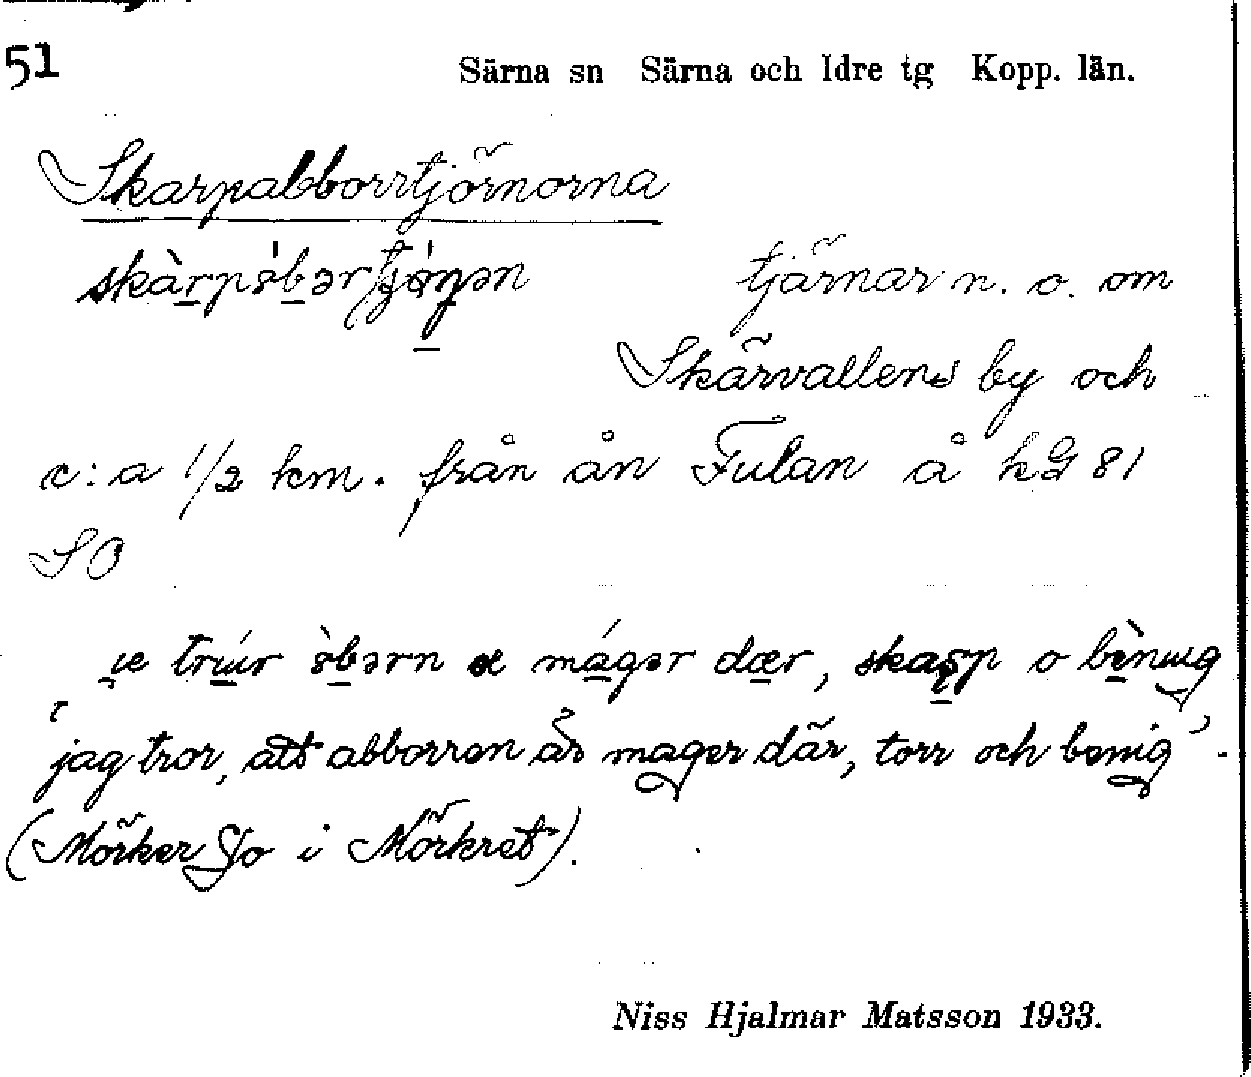 51
Särna sn Särna och Idre tg Kopp. län.
Skarpabborrtjörnorna
tjärnar n. o. om
Skärvallens by och
c:a 1/2 km. från ån Fulan å kG 81
SO
mágər dær, o
'jag tror, att abborren är mager där, torr och benig'.
(Mörker Jo i Mörkret).
Niss Hjalmar Matsson 1933.